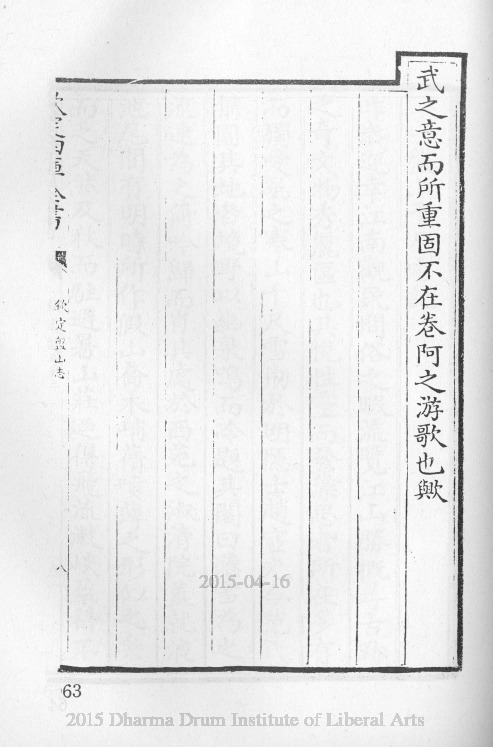 武之意而所重固不在卷阿之游歌也歟
欽定四庫全書
欽定盤山志
八
2015-04-16
63
2015 Dharma Drum Institute of Liberal Arts